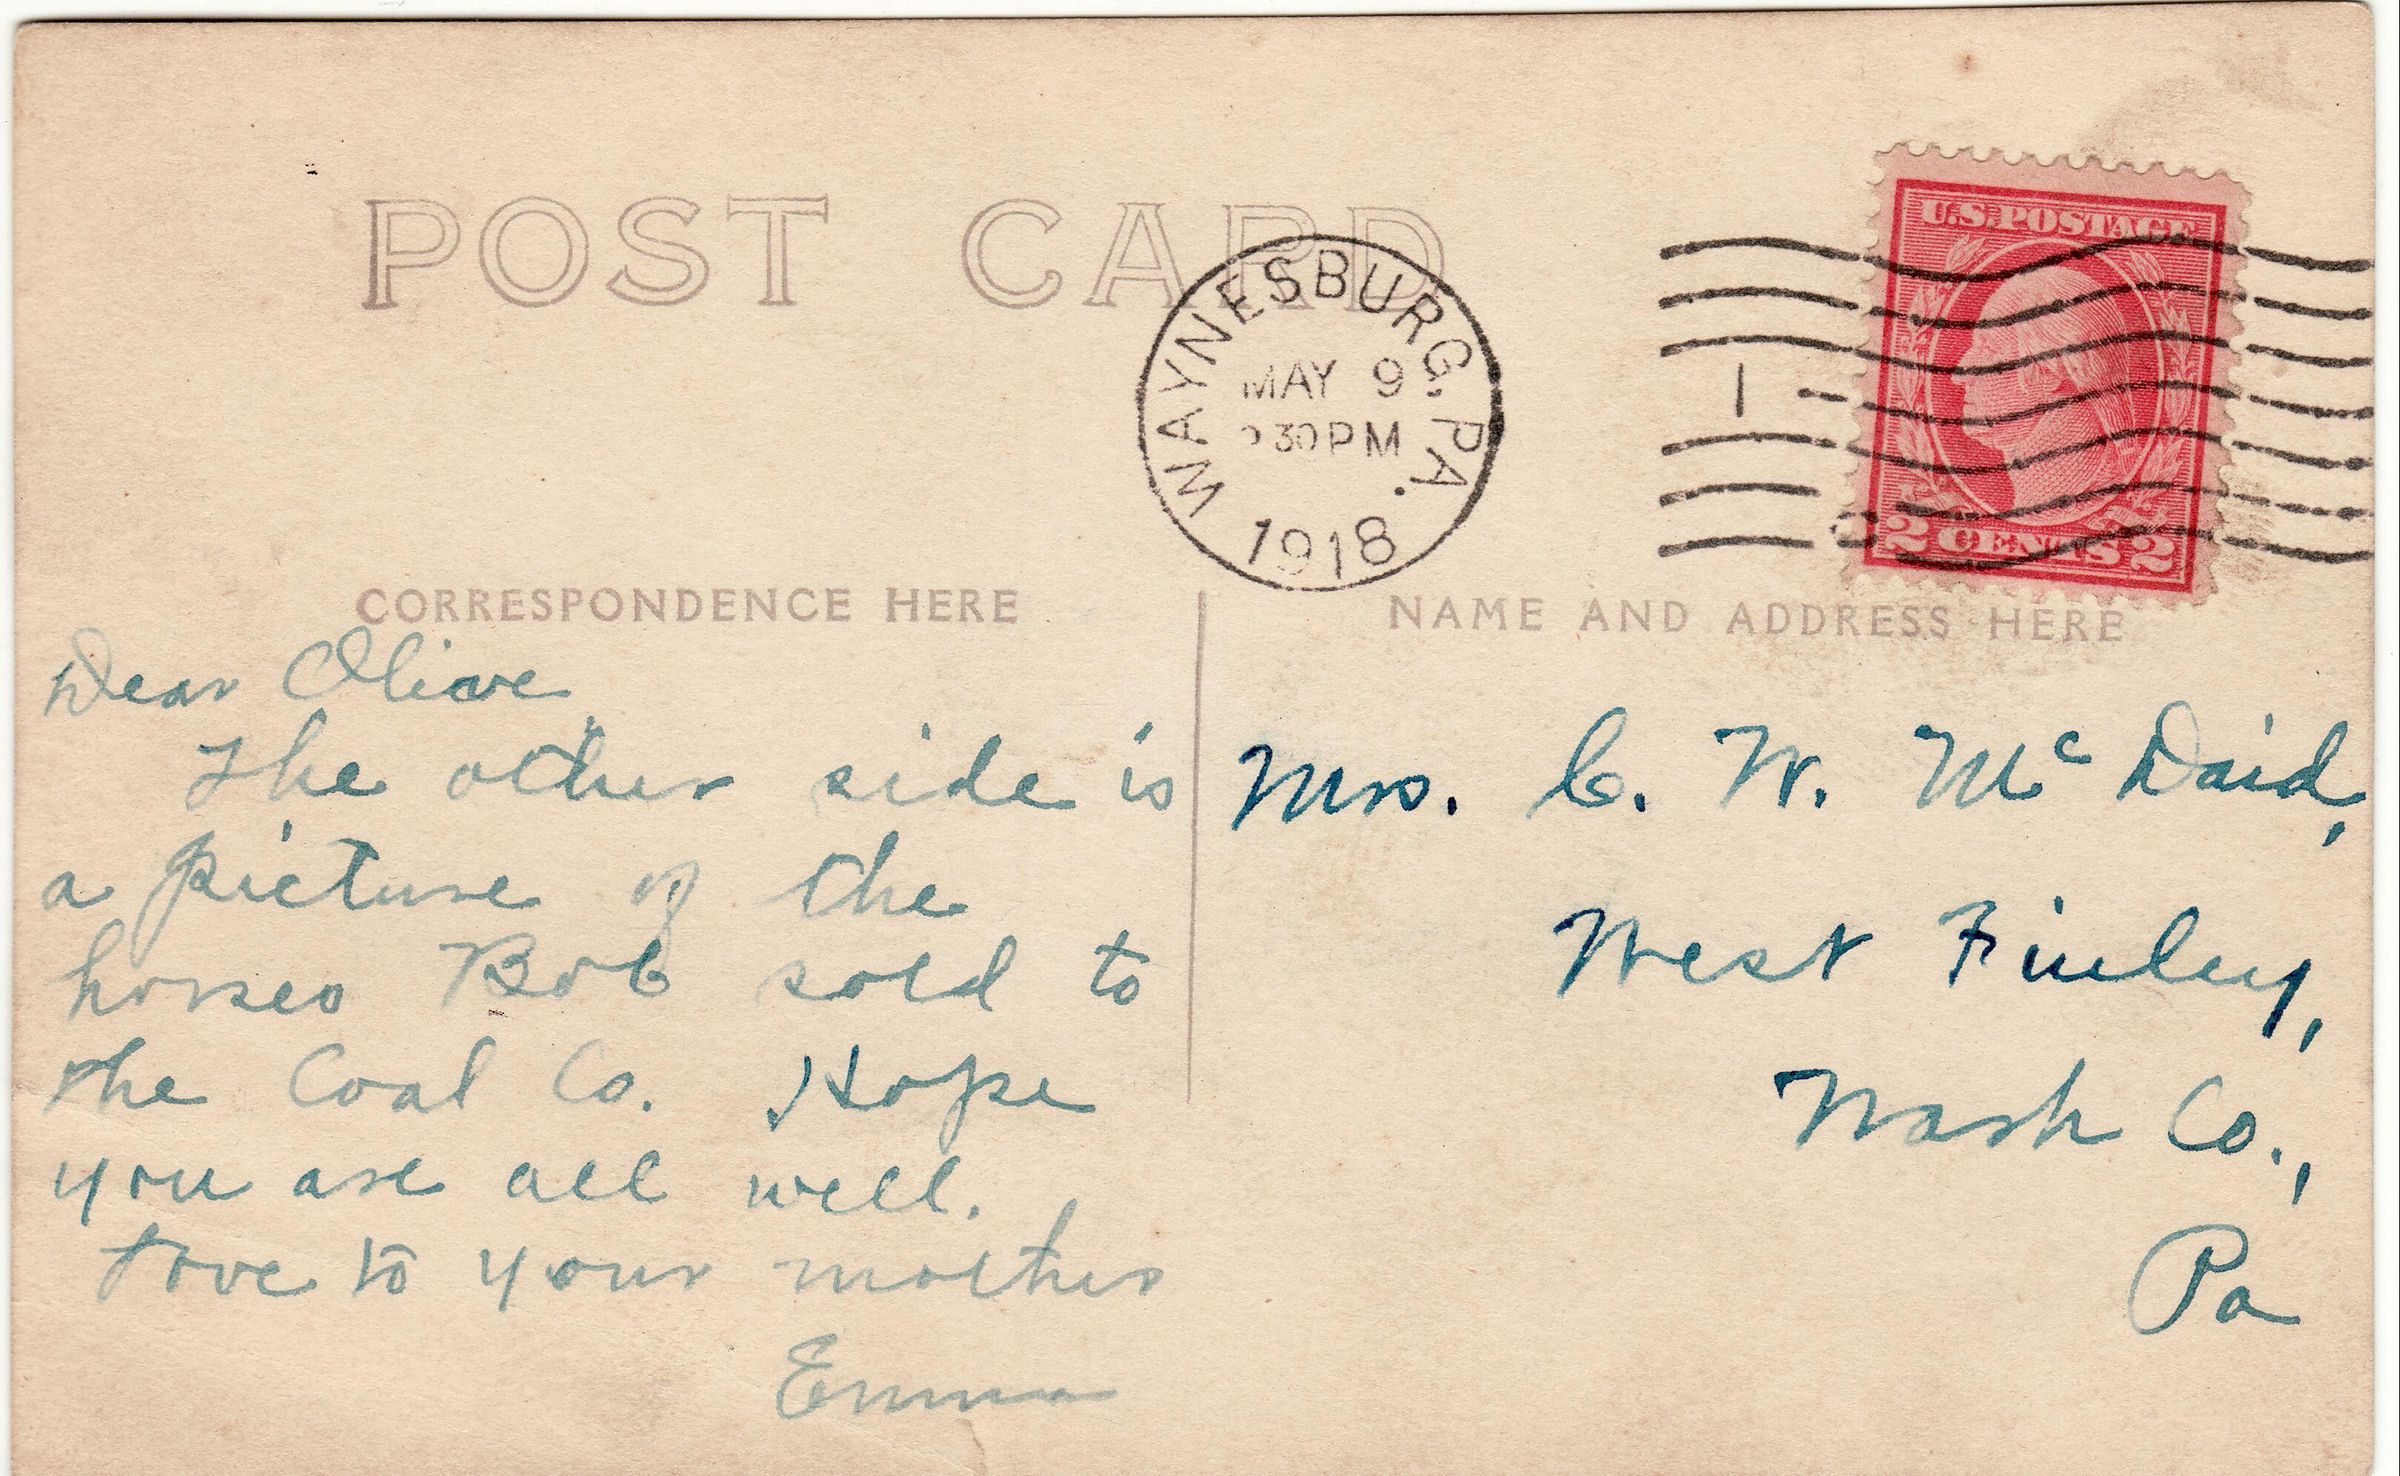 POST CARD
WAYNESBURG, PA.
MAY 9
30 PM
1918
1
U.S. POSTAGE
2 CENTS 2
CORRESPONDENCE HERE
NAME AND ADDRESS HERE
Dear Olive,
The other side is
a picture of the
horses Bob sold to
the Coal Co. Hope
you are all well.
Love to your mother
Emma
Mrs. C. W. McDaid,
West Finley,
Wash Co.,
Pa